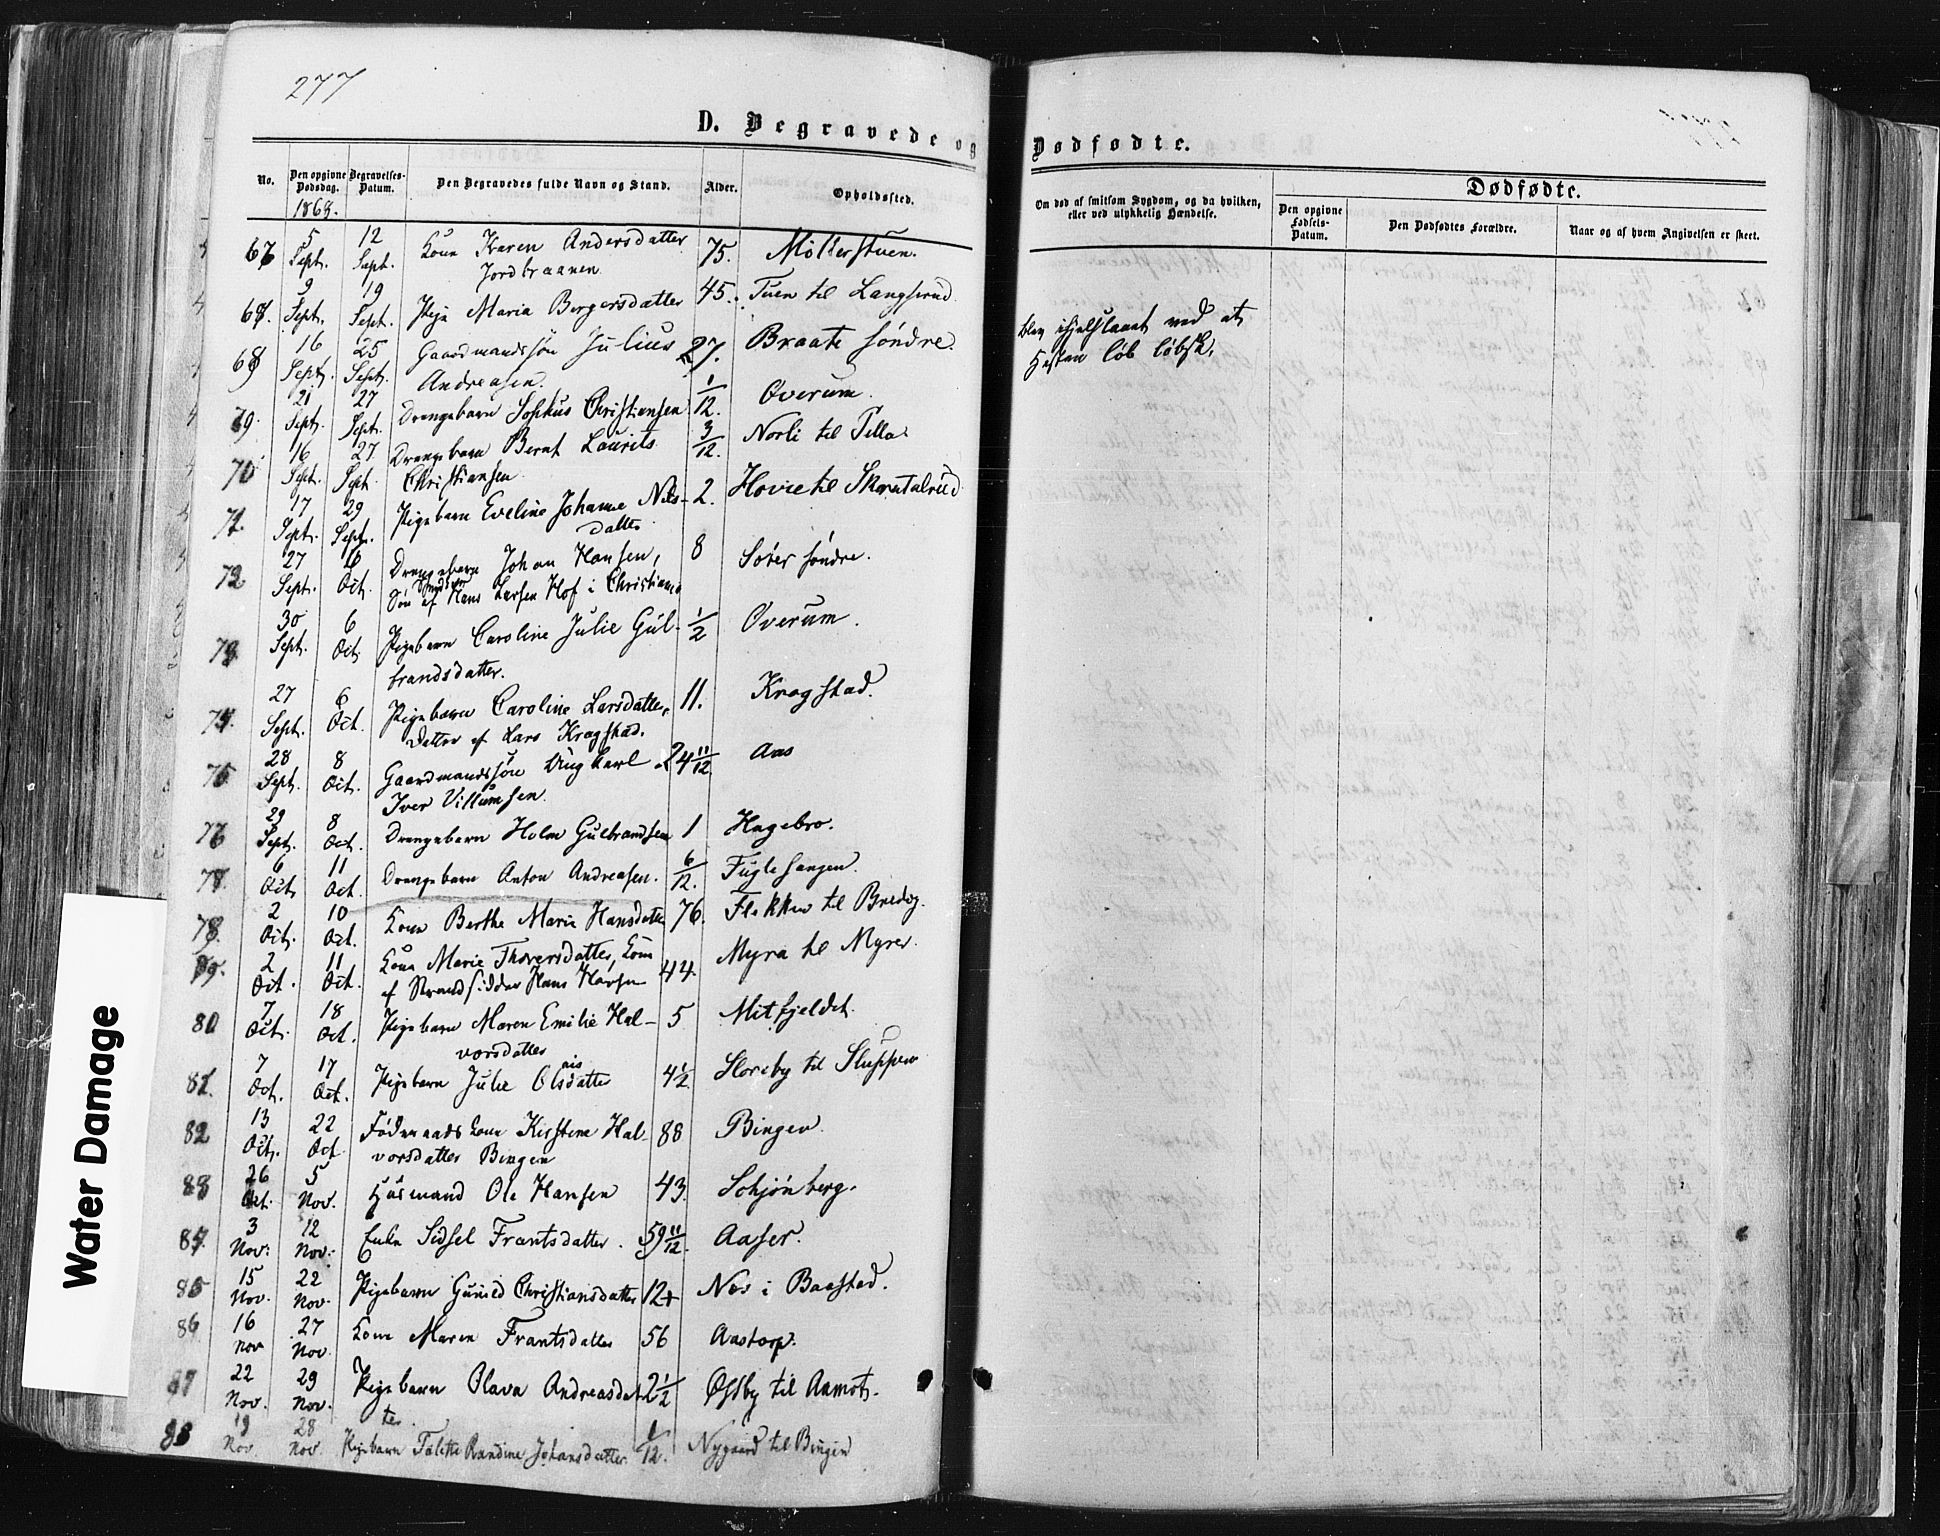 277
D. Begravede og Dødfødte.
No. Den opgivne Dødsdag. Begravelses-Datum. Den Begravedes fulde Navn og Stand. Alder. Opholdssted. Om død af smitsom Sygdom, og da hvilken, eller ved ulykkelig Hændelse. Dødfødte.
Den opgivne Fødsels-Datum. Den Dødfødtes Forældre. Naar og af hvem Angivelsen er skeet.
1868.
66 5 Sept. 12 Sept. Kone Karen Andersdatter 75. Møllerstuen.
Jordbraanen
67. 9 Sept. 19 Sept. Pige Maria Bergersdatter 45. Tuen til Langserud
68 16 Sept. 25 Sept. Gaardmandssøn Julius 27. Braate søndre. Blev ihjelslaaet ved at
Andreasen. Hesten løb løbsk.
69. 21 Sept. 27 Sept. Drengebarn Sophus Christiansen 1/12. Overum.
70 16 Sept. 27 Sept. Drengebarn Bernt Laurits 3/12. Norli til Tella
Christiansen
71. 17 Sept. 29 Sept. Pigebarn Eveline Johanne Nils- 2. Hovie til Skantalrud
datter
72 27 Sept. 6 Oct. Drengebarn Johan Hansen, 8 Soter søndre.
Søn af Hans Larsen Hof i Christiania
73. 30 Sept. 6 Oct. Pigebarn Caroline Julie Gul- 1/2 Overum.
brandsdatter.
74. 27 Sept. 6 Oct. Pigebarn Caroline Larsdatter, 11. Kragstad.
Datter af Lars Kragstad.
75 28 Sept. 8 Oct. Gaardmandssøn Ungkarl 24 11/12. Aas
Iver Villumsen
76 29 Sept. 8 Oct. Drengebarn Holm Gulbrandsen 1 Hagebro.
77. 6 Oct. 11 Oct. Drengebarn Anton Andreasen. 6/12. Fuglesangen.
78. 2 Oct. 10 Oct. Kone Berthe Marie Hansdatter 76. Flekken til Bredeg.
79. 2 Oct. 11 Oct. Kone Marie Thorersdatter, Kone 44. Myra til Myrer.
af Strandsidder Hans
80 7 Oct. 18 Oct. Pigebarn Maren Emilie Hal- 5 Mitfjeldet.
vorsdatter
81. 7 Oct. 17 Oct. Pigebarn Julie Olsdatter 4 1/2 Storeby til Sluppen
82 13 Oct. 22 Oct. Føderaads Kone Kirstine Hal- 88 Bingen.
vorsdatter Bingen
83 26 Oct. 5 Nov. Husmand Ole Hansen 43. Schjønberg.
84. 3 Nov: 12 Nov: Enke Sidsel Frantsdatter. 59 11/12. Aaser.
85 15 Nov. 22 Nov. Pigebarn Gunild Christiansdatter 12 Nes i Baastad.
86 16 Nov 27 Nov. Kone Maren Frantsdatter 56 Aastorp.
87 22 Nov. 29 Nov. Pigebarn Olava Andreasdat- 2 1/2 Østby til Aamot.
ter
88 19 Nov. 28 Nov. Pigebarn Tolette Randine Johansdatter 1/12. Nygaard til Bingen
Water Damage